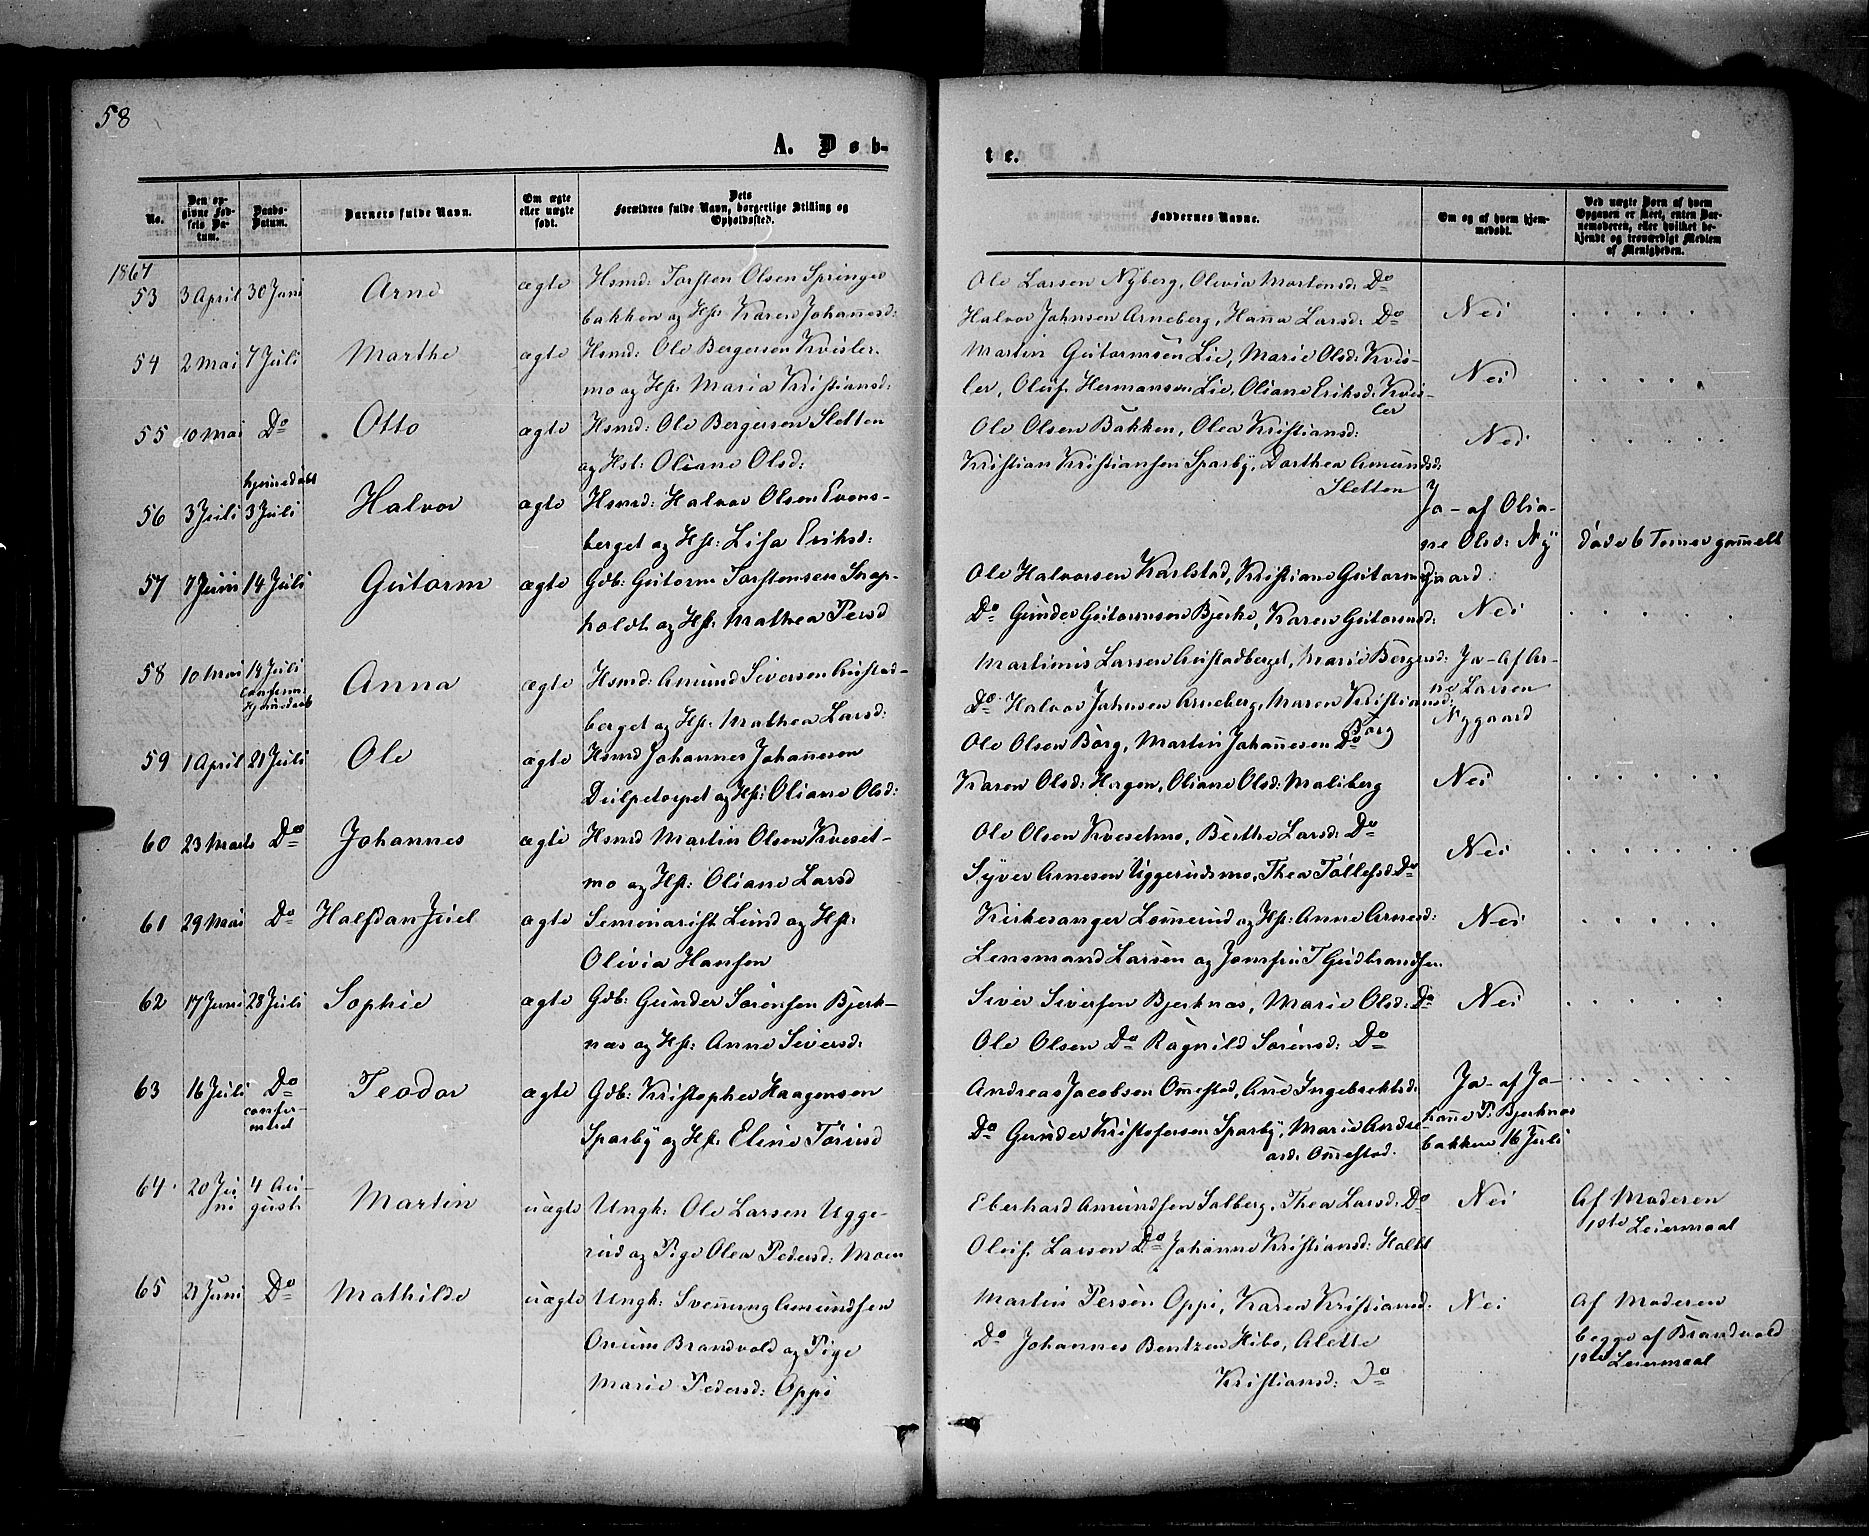 58
A. Døb-
te.
No.
Den op-
givne Fød-
sels Da-
tum.
Daabs-
Datum.
Barnets fulde Navn.
Om ægte
eller uægte
født.
Dets
Forældres fulde Navn, borgerlige Stilling og
Opholdssted.
Faddernes Navne.
Om og af hvem hjem-
medøbt.
Ved uægte Børn af hvem
Opgaven er skeet, enten Bar-
nemoderen, eller hvilket be-
kjendt og troværdigt Medlem
af Menigheden.
1867
53 3 April 30 Juni Arne ægte Hsmd: Torsten Olsen Springer
bakken og Hst: Karen Johannesd:
Ole Larsen Nyberg, Olivia Mortensd: Do
Halvor Johnsen Arneberg, Hanna Larsd: Do
Nei
54 2 Mai 7 Juli Marthe ægte Hsmd: Ole Bergersen Kvisler-
mo og Hst: Maria Kristiansd:
Martin Gutormsen Lie, Marie Olsd: Kvis-
ler, Oluf Hermansen Lie, Oliane Eriksd: Kvis-
ler
Nei
55 10 Mai Do Otto ægte Hsmd: Ole Bergersen Sletten
og Hst: Oliane Olsd:
Ole Olsen Bakken, Olea Kristiansd:
Kristian Kristiansen Sparby, Dorthea Amundsd:
Sletten
Nei
56 3 Juli hjemmedøbt
3 Juli Halvor ægte Hsmd: Halvor Olsen Evens-
berget og Hst: Lisa Eriksd:
Ja - af Olia-
ne Olsd: Ny
gaard:
døde 6 Timer gammelt
57 7 Juni 14 Juli Gutorm ægte Gdb: Gutorm Torstensen Snap-
holdt og Hst: Mathea Persd
Ole Halvorsen Karlstad, Kristiane Gutormsd
Do Gunder Gutormsen Bjerke, Karen Gutormsd:
Nei
58 10 Mai 14 Juli
confirm:
hjemmedøbt Anna ægte Hsmd: Amund Siversen Austad-
berget og Hst: Mathea Larsd:
Martinus Larsen Austadberget, Marie Bergersd:
Do Halvor Johnsen Arneberg, Maren Kristiansd:
Borg
Ja - Af Ar-
ne Larsen
Nygaard
59 1 April 21 Juli Ole ægte Hsmd Johannes Johannesen
Dulpetorpet og Hst: Oliane Olsd:
Ole Olsen Borg, Martin Johannesen Do
Karen Olsd: Hagen, Oliane Olsd: Maliberg
Nei
60 23 Marts Do Johannes ægte Hsmd Martin Olsen Kveset-
mo og Hst: Oliane Larsd
Ole Olsen Kvesetmo, Berthe Larsd: Do
Syver Arnesen Uggerudsmo, Thea Tollefsd Do
Nei
61 29 Mai Do Halfdan Juel ægte Seminarist Lund og Hst:
Olivia Hansen
Kirkesanger Lømerud og Hst: Anne Arnesd:
Lensmand Larsen og Jomfru T Gudbrandsen
Nei
62 17 Juni 28 Juli Sophie ægte Gdb: Gunder Sørensen Bjerk-
næs og Hst: Anne Siversd:
Siver Siversen Bjerknæs, Marie Olsd: Do
Ole Olsen Do Ragnild Sørensd: Do
Nei
63 16 Juli Do
confir-
meret Teodor ægte Gdb: Kristopher Haagensen
Sparby og Hst: Eline Torersd
Andreas Jacobsen Ommestad, Ane Ingebrektsd:
Do Gunder Kristofersen Sparby, Marie Andre
asd: Ommestad.
Ja - af Jo-
hanne P. Bjerknæs
bakken 16 Juli
64. 20 Ju
ni 4 Au-
gust Martin uægte Ungk: Ole Larsen Ugge-
rud og Pige Olea Pedersd: Moen
Eberhard Amundsen Solberg, Thea Larsd: Do
Oluf Larsen Do Johanne Kristiansd: Holtt
Nei
Af Moderen
1ste Leiermaal
65 21 Juni Do Mathilde uægte Ungk: Svennung Amundsen
Onum Brandvold og Pige
Marie Pedersd: Oppi
Martin Persen Oppi, Karen Kristiansd:
Do Johannes Bentzen Hibo, Alette
Kristiansd: Do
Nei
Af Moderen
begge af Brandvold
1ste Leiermaal